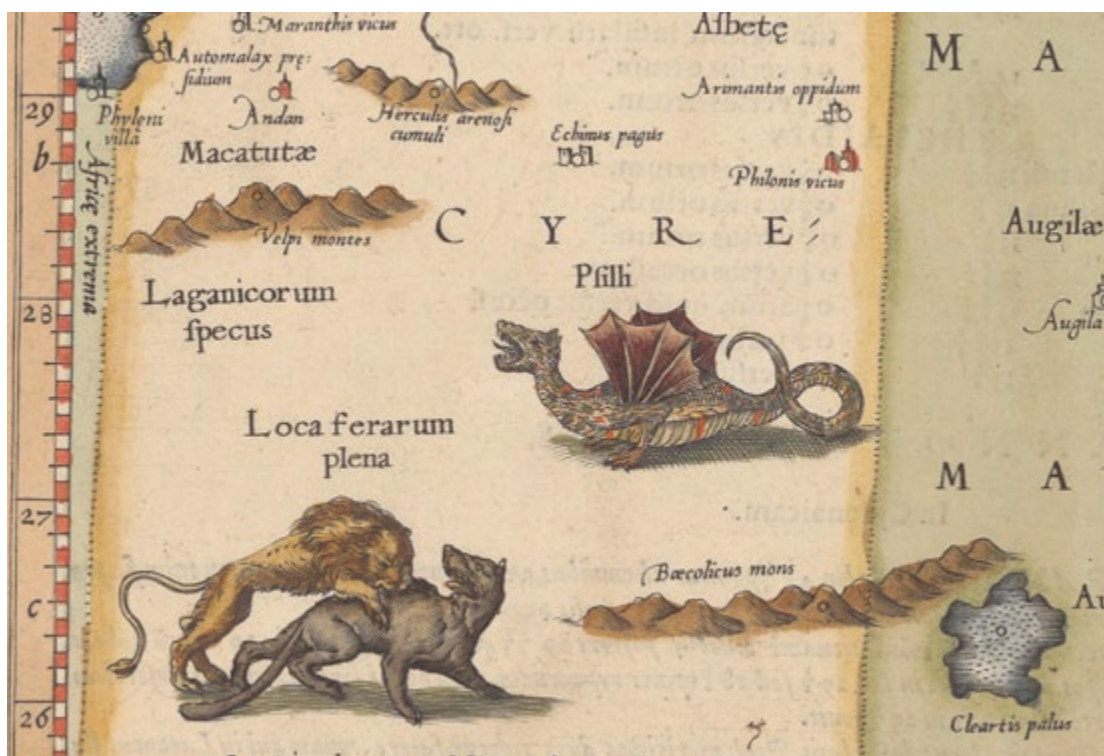 Maranthis vicus
Aſbetę
M A
Automalax prę:
ſidium
Arimantus oppidum
29
Phyleni
villa
Andan
Herculis arenoſi
cumuli
Echinus pagus
b
Macatutæ
Philonis vicus
Africę extrema
Velpi montes
C Y R E
Augilæ
Pſilli
Laganicorum
ſpecus
28
Augila
Loca ferarum
plena
M A
27
Bæcolicus mons
c
Au
26
Cleartis palus